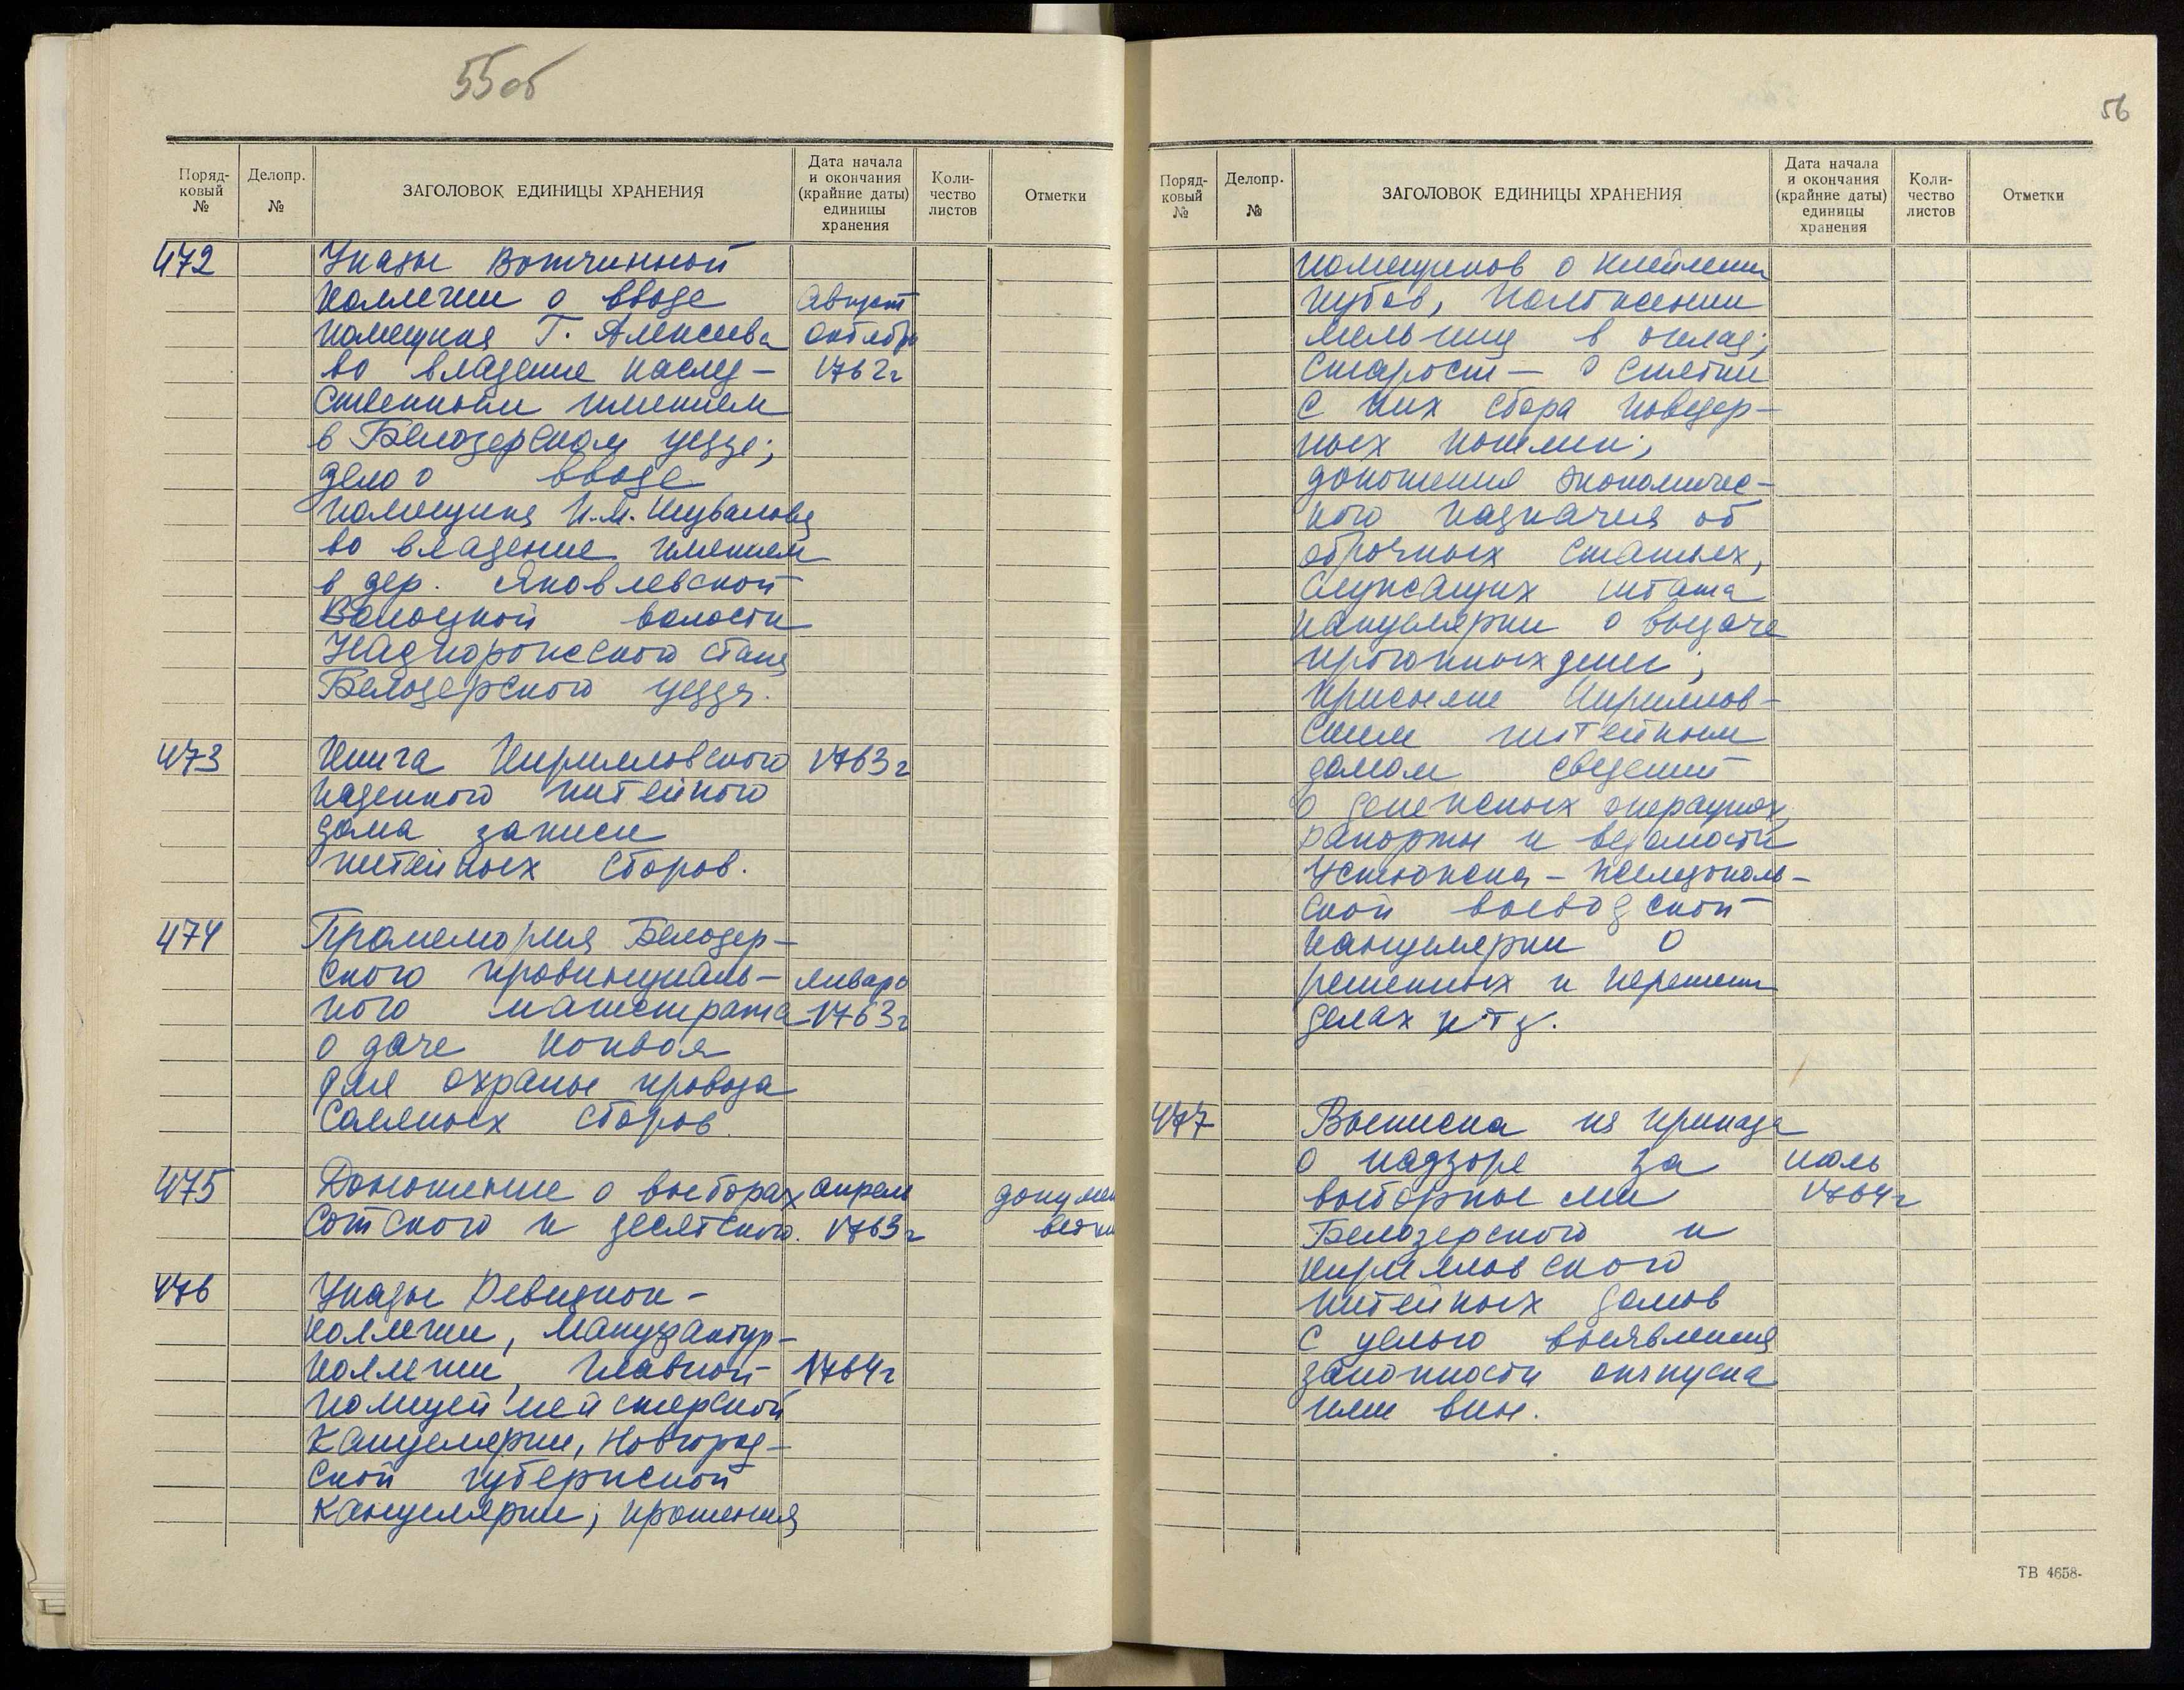 55об
Поряд-
ковый
№
Делопр.
№
ЗАГОЛОВОК ЕДИНИЦЫ ХРАНЕНИЯ
Дата начала
и окончания
(крайние даты)
единицы
хранения
Коли-
чество
листов
Отметки
472
Указы Вотчинной
коллегии о вводе Август
помещика Г. Алексеева октябрь
во владение наслед- 1762г
ственным имением
в Белозерском уезде;
дело о вводе
помещика И.М. Шувалова
во владение имением
в дер. Яковлевской
волости
Надпорожского стана
Белозерского уезда.
473 Книга Кирилловского 1763г
казенного питейного
дома записи
питейных сборов.
474 Промемория Белозер-
ского провинциаль- январь
ного магистрата 1763г
о даче конвоя
для охраны провоза
соляных сборов.
475 Доношение о выборах апрель
сотского и десятского. 1763г
476 Указы Ревизион-
коллегии, Мануфактур-
коллегии, Главной 1764г
полицеймейстерской
канцелярии, Новгород-
ской губернской
канцелярии; прошения
56
Поряд-
ковый
№
Делопр.
№
ЗАГОЛОВОК ЕДИНИЦЫ ХРАНЕНИЯ
Дата начала
и окончания
(крайние даты)
единицы
хранения
Коли-
чество
листов
Отметки
помещиков о клеймении
кубов, положении
мельниц в оклад;
старост – о снятии
с них сбора поведер-
ных пошлин;
доношения экономичес-
кого казначея об
оброчных статьях,
служащих штата
канцелярии о выдаче
прогонных денег;
присылке Кириллов-
ским питейным
домом сведений
о денежных операциях,
рапорты и ведомости
Устюжена-Железополь-
ской воеводской
канцелярии о
решенных и нерешен
делах и т д.
477 Выписка из приказа
о надзоре за июль
выборными 1764г
Белозерского и
Кирилловского
питейных домов
с целью выявления
законности отпуска
ими вин.
ТВ 4658-